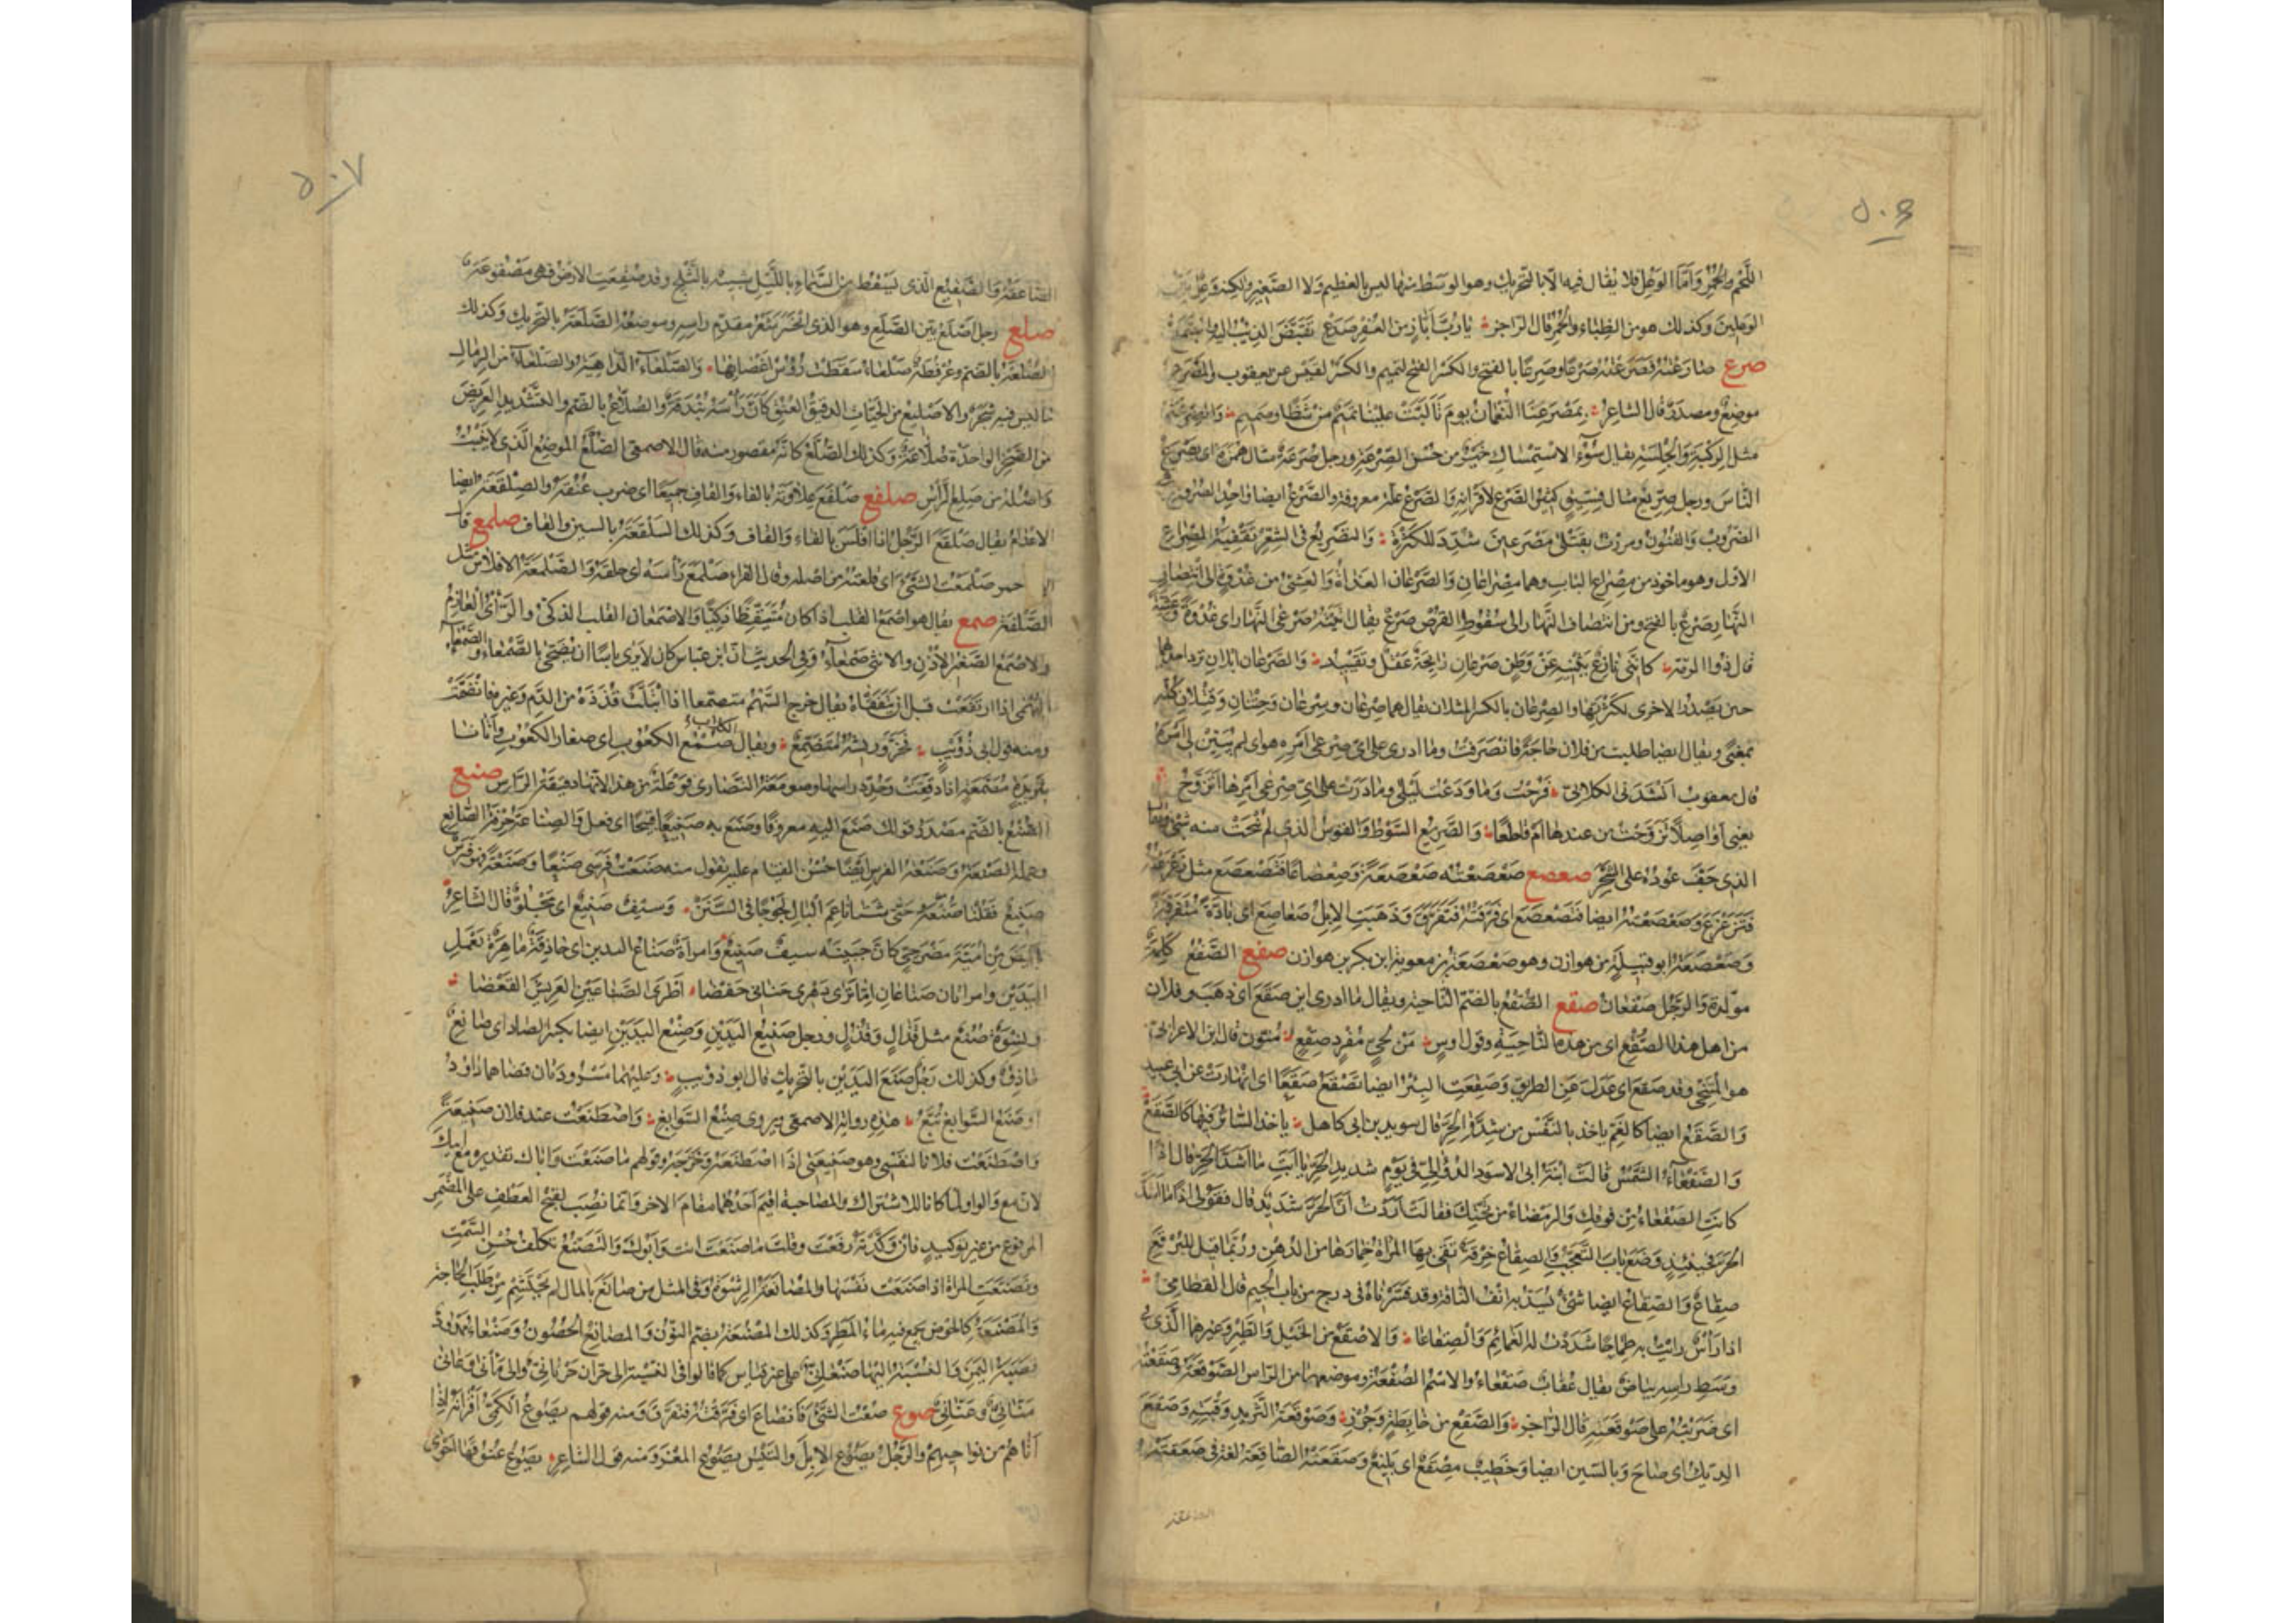 ٥٠٦
اللحم والحُمُر وَأمّا الوَعِل فلا يقال فيه الّا بالتحريك وهو الوسط منها ليس بالعظيم وَلا الصّغير ولكنه وَعِل بين
الوعلين وكذلك هو من الظباء والحُمُر قال الرّاجز يا رُبَّ أبّازٍ من العُفْر صَدَع تَقَبَّضَ الذئب اليه واجتمع
صرع صَارَعْتُهُ فَصَرَعْتُهُ صَرْعًا وصِرْعًا بالفتح والكسر الفتح لتميم والكسر لقيس عن يعقوب والمَصْرَع
موضع ومصدر قال الشاعر بمَصْرَعِنَا النُّعْمَانَ يوم تَألّبَتْ علينا تميمٌ من شَظًا وصَميم والصِّرْعَة
مثل الرِكْبَةِ وَالجِلْسَةِ يقال سُوْءُ الاسْتِمْسَاكِ خيرٌ من حُسْنِ الصِّرْعَةِ ورجل صُرَعَة مثال هُمَزَة اى يصرع
النّاسَ ورجل صِرِّيع مثال فِسِّيقٍ كثير الصَّرْع لاقرانه وَالصَّرْع علّة معروفة والصَّرْع ايضا واحد الصُّروع وهى
الضروب وَالفنُون ومررت بقتلى مُصَرَّعينَ شُدِّدَ للكثرة وَالتصْريع فى الشعْر تَقْفِيَةُ المِصْراع
الاوّل وهو مأخوذ من مِصْراع البَاب وهما مصْراعانِ وَالصَّرْعانِ الغدَاةُ وَالعَشِىُّ من غُدْوَةٍ الى انتصاف
النَّهار صَرْعٌ بالفتح ومن انتصَاف النَّهَار الى سُقُوط القُرْص صَرْعٌ يقال أتَيْتُه صَرْعَىِ النَّهَار اى غُدْوَةً وَعَشِيَّةً
قال ذو الرمّة كَأنَّنى نَازِعٌ يَثْنِيْهِ عَنْ وَطَنٍ صَرْعانِ رَائحَةً عَقْلٌ وتَقْيِيد وَالصَّرْعانِ ابلان ترد احداهما
حين تصدر الاخرى لكثرتها والصِّرْعان بالكسر المثلان يقال هما صِرْعان وشِرْعان وَحِتْنانِ وَقِتْلان كلّه
بمعنًى ويقال ايضا طلبت من فلان حاجَةً فانصَرَفتُ وما ادرى على اىّ صِرْعَىْ امره هو اى لم يتبيّن لى امْره
قال يعقوب انشدنى الكلابىّ فَرُحْتُ وَمَا وَدَّعْتُ لَيْلَى وما دَرَتْ على اىّ صِرْعَىْ أمْرِهَا اَتَرَوَّحُ
يعنى اَوَاصِلًا تَرَوَّحْتُ من عندها اَم قاطعًا وَالصَّرِيع السَّوْط وَالقوس الذى لم يُنْحَتْ منه شىْء ويقال
الذى جَفَّ عُوده على الشجر صعصع صَعْصَعْتُه صَعْصَعَةً وَصِعْصَاعًا فتَصَعْصَعَ مثل زَعْزَعْتُهُ
فتَزَعْزَعَ وَصَعْصَعْتُهُ ايضا فتَصَعْصَعَ اى فَرّقتُهُ فَتَفَرَّقَ وَذَهَبَتِ الابلُ صَعَاصِعَ اى نَادَّةً مُتَفَرّقَةً
وَصَعْصَعَةُ ابو قبيلة من هوازن وهو صَعْصَعَةُ بن معوية ابن بكر بن هوازن صفع الصَّفْعُ كلمة
مولّدة وَالرَّجُل صَفْعَانٌ صقع الصُّقْعُ بالضمّ النّاحية ويقال ما ادرى اين صَقَعَ اى ذهَبَ وفلان
من اهل هذا الصُّقْع اى من هذه النّاحِيَةِ وقول اوس مَنْ لحىٍّ مُفْرَدٍ صقِعٍ متون قال ابن الاعرابىّ
هو المُتنحّى وقد صقع اى عَدَل عَن الطريق وَصَقِعَتِ البِئْرُ ايضا تَصْقَعُ صَقَعًا اى انهارت عن ابى عبيد
وَالصَّقَعُ ايضا كالغَمِّ يأخذ بالنَّفْس من شِدَّة الحرّ قال سويد بن ابى كاهل يأخذ السّائرَ فيها كالصَّقَعْ
وَالصَّقْعاءُ الشَّمْسُ قالت ابْنَةُ ابى الاسود الدُّؤَلىّ فى يوم شديد الحرّ يا ابَتِ ما اشَدُّ الحرّ قال اذا
كانت الصَّقْعَاءُ مِن فوقِكِ وَالرَّمْضاء من تحتك فقالت أرَدْتُ أنّ الحرّ شديد قال فقولى اذا ما اشَدَّ
الحرّ فحينئذٍ وَضَعَ بابَ التعجّب وَالصِّقَاعُ خِرْقة تَقى بها المرأة خِمَارَها من الدُّهن وربّما قيل للبُرْقع
صِقَاعٌ وَالصِّقَاعُ ايضا شىْء يُشدّ به انف النّاقة وقد فسّرناه فى درج من باب الجيم قال القطامى
اذا رَأْسٌ رايتُ به طِمَاحًا شَدَدْتُ له الغَمَائمَ وَالصِّقَاعَا وَالاصْقَع من الخَيْل وَالطّير وغيرهما الّذى فى
وَسَطِ رأسه بياض يقال عُقابٌ صَقْعَاءُ والاسم الصُّقْعَة وموضعها من الرّاس الصَّوْقَعَة وصَقَعْتُه
اى ضَرَبْتُهُ على صَوْقعَته قال الرّاجز وَالصَّقْعِ من خَابِطَةٍ وَجُرْزِ وَصَوْقَعَة الثّريد وَقْبَتُه وَصَقَعَ
الديك اى صَاحَ وَبالسّين ايضا وَخَطِيبٌ مِصْقَعٌ اى بَليغٌ وَصَقَعَتْه الصّاقِعَةُ لغة فى صَعَقَتْه
الصاعقة
٥٠٧
الصّاعقة وَالصَّقِيع الّذى يَسْقُط من السَّمَاءِ باللّيْل شبيه بالثّلج وقد صُقِعَت الارضُ فهى مَصْقُوعَة
صلع رجل اَصْلَعُ بيّن الصَّلَع وهو الذى انحسَرَ شَعْر مقدّم راسه وموضعه الصَّلَعَة بالتّحريك وكذلك
الصُّلْعَة بالضم وعُرْفُطَةٌ صَلْعَاءُ سَقَطَتْ رُؤُسُ اَغْصَانِهَا وَالصَّلْعَاءُ الدّاهِيَةُ والصَلْعَاءُ من الرمال
ما ليس فيه شجَرٌ والاصَيْلِعُ من الحَيّاتِ الدقيقُ العُنُق كانَّ رَأسَهُ بُنْدُقَةٌ والصُّلّاعُ بالضّم والتشديد العَريضُ
من الصَّخر الواحدة صُلّاعَةٌ وَكذلك الصُّلَّعُ كانّه مَقصور منه قال الاصمعى الصُّلَّعُ الموضع الّذى لا يُنْبِتُ
وَاصْلُهُ من صَلَع الرّأس صلفع صَلْفَعَ عِلَاوَتَه بالفاء والقاف جميعًا اى ضرب عُنُقَهُ والصَّلْفَعَةُ ايضا
الاعدَامُ يقال صَلْقَعَ الرَّجُلُ اذا افْلَسَ بالفاء وَالقاف وَكذلك السَّلْقَعَةُ بالسين والقاف صلمع قا
الاحمر صَلْمَعْتُ الشَّىْءَ اى قلعتُهُ من اصْله وقال الفَرّاء صَلْمَعَ رَأسَهُ اى حلقَهُ وَالصَّلْمَعَة الافلاس مثل
الصَّلْفَعَة صمع يقال هو اصْمَعُ القَلْب اذا كان مُتَيَقّظًا ذَكِيًّا وَالاصْمَعَان القلب الذكىّ والرَّأىُ العازم
والاصْمَعُ الصَّغيرُ الاذُنِ والانثى صَمْعَاءُ وَفى الحديث انّ ابن عبّاس كان لا يرى باسًا ان يُضَحّى بالصَّمْعَاء والصَّمْعاء
البُهْمَى اذا ارتَفَعَتْ قبل ان تتَفَقّأ يقال خرج السَّهْمُ متصمّعا اذا ابْتَلَّتْ قُذَذُه من الدَّم وَغيره فانضَمَّتْ
ومنه قول ابى ذُؤَيْبٍ فخَرَّ ورِيشُهُ مُتَصَمِّعُ ويقال للكلاب صُمْعُ الكعُوبِ اى صغار الكعُوبِ وأتانا
بثَريدةٍ مُصَمَّعَةٍ اذا دُقّقَتْ وحُدّد راسها وصَوْمَعَةُ النَّصَارى فَوْعَلَةٌ من هذا لانّها دقيقة الرّاس صنع
الصُّنْع بالضّم مصدر قولك صَنَعَ اليه معروفًا وصَنَعَ به صَنيعًا قبيحًا اى فعل وَالصِّنَاعَة حِرْفة الصَّانع
وعمله الصَّنعَة وَصَنْعَةُ الفرس ايضًا حُسْن القيام عليه تقول منه صَنَعْتُ فرَسى صَنْعًا وصَنْعَةً فهو فرسٌ
صَنيعٌ فنَقَلنَا صَنْعَهُ حتى شتا ناعِمَ البَالِ لَجُوجًا فى السَّنَنْ وَسَيْفٌ صَنيعٌ اى مجْلُوٌّ قال الشاعر
بابيض من اُمَيّة مَضْرَحِىٍّ كانَّ جَبينَه سيفٌ صَنيعُ وَامرأةٌ صَنَاعُ اليدين اى حاذِقَةٌ ماهِرَةٌ بعَمَلِ
اليَدَيْن وامراتان صَنَاعَانِ اِمّا تَرَى دَهْرِى حَنَانى حَفْضَا اَطْرَ الصَّنَاعَيْنِ العَرِيشَ القَعْضَا
ونِسْوَةٌ صُنُعٌ مثل قَذَالٍ وَقُذُلٍ ورجل صَنيعُ اليَدَيْن وَصِنْعُ اليَدَيْن ايضا بكسر الصّاد اى صَانِعٌ
حاذق وكذلك رَجُلٌ صَنَعُ اليَدَيْن بالتّحريك قال ابو ذؤيبٍ وَعليهما مَسْرُودَتَانِ قضاهما دَاوُدُ
اَو صَنَعُ السَّوَابِغِ تُبَّعُ هذه رواية الاصمعى ويروى صَنَعَ السَّوَابغَ وَاصْطَنَعْتُ عند فلان صَنيعَةً
وَاصْطَنَعْتُ فلانا لنفْسى وهو صَنيعَتى اذا اصْطَنَعْتَهُ وخَرّجتَه وقولهم ما صَنَعْتَ وَاباك تقديره مع ابيك
لان مع والواو لمّا كانا للاشتراك والمصاحبة اقيم اَحدُهما مقامَ الاخر وَانّما نُصِبَ لقبح العطف على المُضْمَر
المرفوع من غير توكيد فان وَكّدْتَه رَفعْتَ وقلتَ ما صَنَعْتَ انت وَأبُوكَ وَالتَّصَنُّع تكلّف حُسْن السَّمْت
وتَصَنَّعَتِ المرأة اذا صَنَعَتْ نفْسَهَا والمُصَانَعَةُ الرِّشْوَةُ وَفى المثل من صَانَعَ بالمال لم يَحْتَشِمْ مِن طَلَبِ الحاجة
وَالمَصْنَعَةُ كالحوض يُجمع فيه ماءُ المَطَر وَكذلك المَصْنُعَةُ بضم النّون وَالمصانِعُ الحُصُونُ وَصَنْعَاءُ ممْدُودٌ
قصَبَةُ اليَمَنِ وَالنّسْبَةُ اليها صَنْعَانِىٌّ على غير قياس كما قالوا فى النسبة الى حَرّان حَرْنَانِىٌّ والى مَانى وعَانى
مَنّانِىٌّ وعَنّانِىٌّ صوع صُعْتُ الشَّىْءَ فانصَاعَ اى فَرَّقتُهُ فتَفَرَّقَ وَمنه قولهم يَصُوعُ الكَمِىُّ اَقْرَانَهُ اذا
اَتَاهُم من نَواحيهم والرَّجُلُ يَصُوعُ الابِلَ والتَّيْسُ يَصُوعُ المَعْزَ وَمنه قول الشاعر يَصُوعُ عُنُوقَهَا اَحْوَى